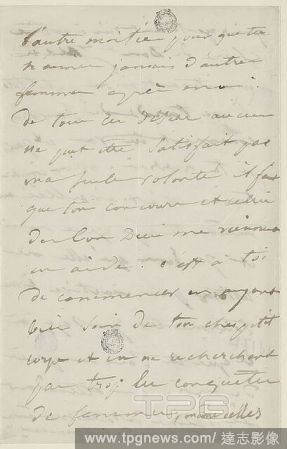 l'autre moitié pour que tu
n'aimes jamais d'autre
femme après moi.
De tous les désirs aucun
ne peut être satisfait par
ma seule volonté il faut
que ton concours et celui
du bon Dieu me viennent
en aide. c'est à toi
de commencer en ayant
bien soin de ton cher petit
corps et en ne recherchant
pas trop les conquêtes
de femmes,
TPG
www.tpgnews.com / 達志影像